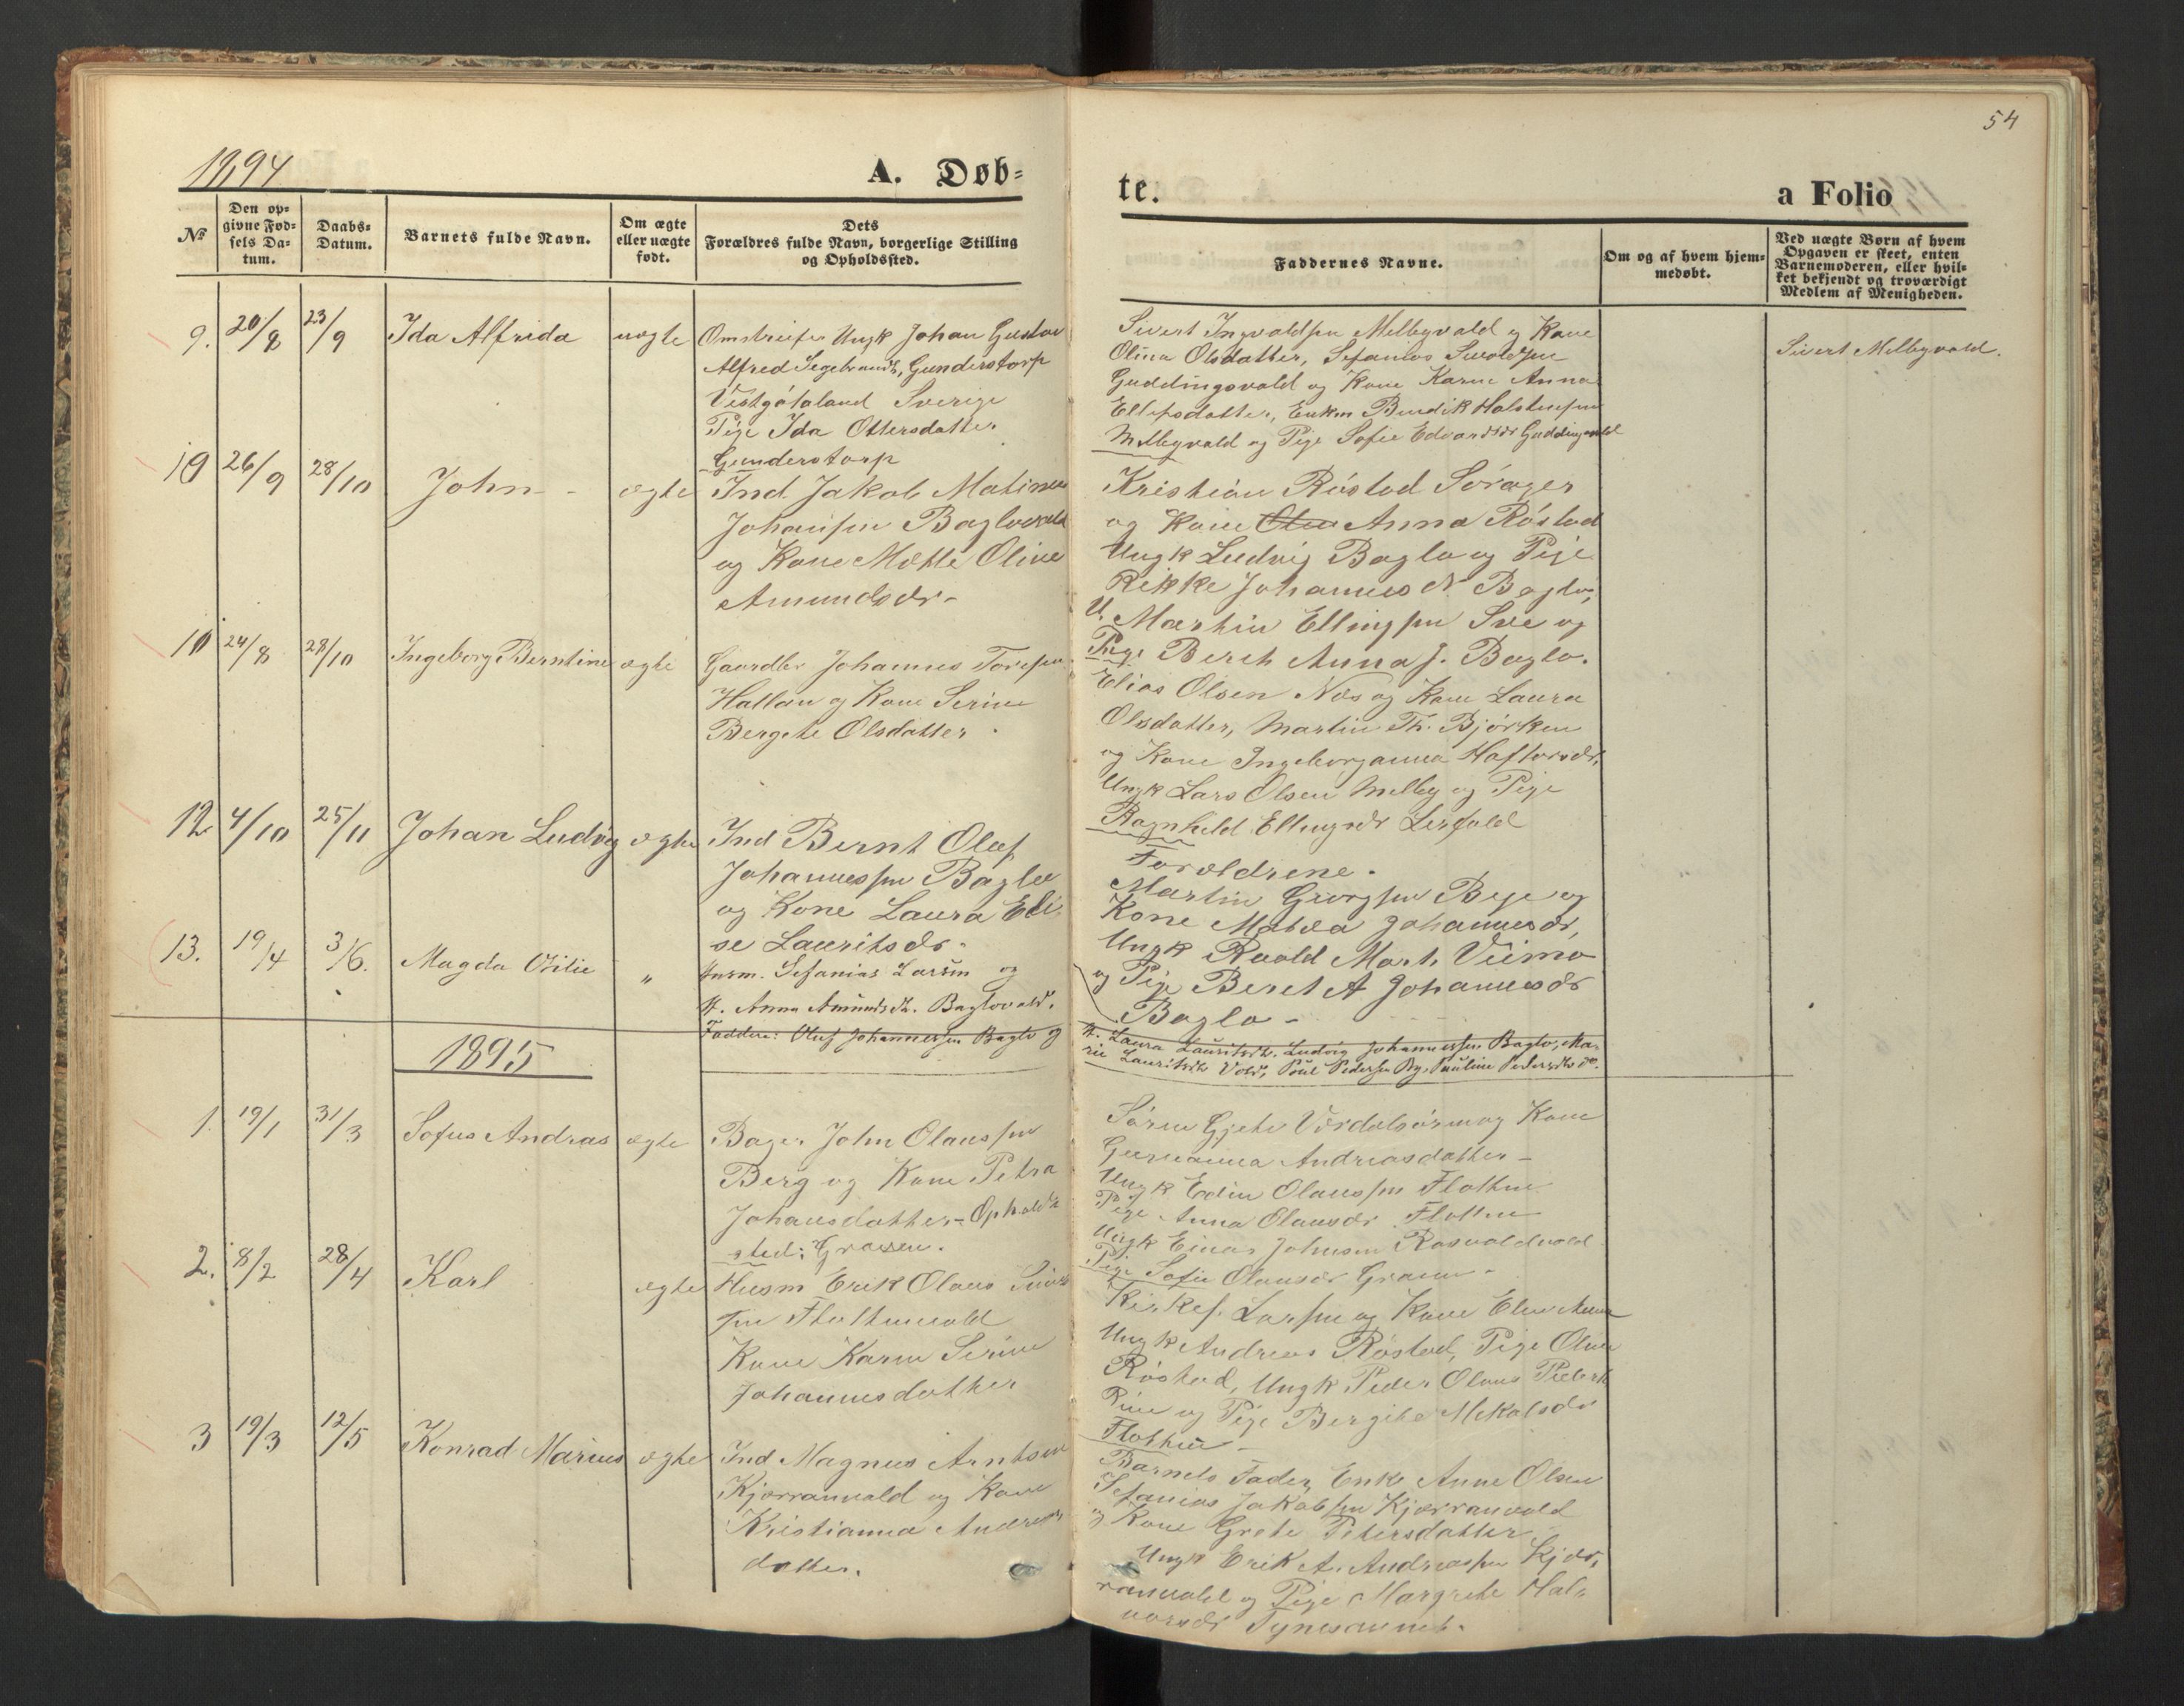 54
1894
A. Døb=
te.
a Folio
№
Den op=
givne Fød=
sels Da=
tum.
Daabs=
Datum.
Barnets fulde Navn.
Om ægte
eller uægte
født.
Dets
Forældres fulde Navn, borgerlige Stilling
og Opholdssted.
Faddernes Navne.
Om og af hvem hjem=
medøbt.
Ved uægte Børn af hvem
Opgaven er skeet, enten
Barnemoderen, eller hvil=
ket bekjendt og troværdigt
Medlem af Menigheden.
9. 20/8 23/9 Ida Alfrida uægte Omstreifer Ungk Johan Gustav
Alfred Segebrandt, Gunderstorp
Vestgötaland Sverige
Pige Ida Ottersdatter
Gunderstorp
Sivert Ingvaldsen Melbyvald og Kone
Olina Olsdatter, Sefanias
Guddingsvald og Kone Karen Anna
Ellefsdatter, Enkm Bendik Halstensen
Melbyvald og Pige Sofie Edvardsdr Guddingsvald
Sivert Melbyvald.
10 26/9 28/10 John ægte Ind Jakob Matineus
Johansen Baglovald
og Kone Mette Oline
Amundsdr
Kristian Røstad Sørager
og Kone Oline Anna Røstad
Ungk Ludvig Baglo og Pige
Rikke Johannesdr Baglo,
U. Martin Ellingsen Sve og
Pige Beret Anna J. Baglo.
11 24/8 28/10 Ingeborg Berntine ægte Gaardbr Johannes Toresen
Hallan og Kone Serine
Bergete Olsdatter
Elias Olsen Næs og Kone Laura
Olsdatter, Martin Th. Bjørken
og Kone Ingeborganna Haftorsdr,
Ungk Lars Olsen Melby og Pige
Ragnhild Ellingsdr Lerfald
12 4/10 25/11 Johan Ludvig ægte Ind Bernt Oluf
Johannessen Baglo
og Kone Laura Eli
se Lauritsdr
Forældrene.
Martin Georgsen Bye og
Kone Matea Johannesdr,
Ungk Roald Mart. Viimo
og Pige Beret A Johannesdr
Baglo
13. 19/4 3/6. Magda Otilie „ Husm. Sefanias Larsen og
K. Anna Amundsdtr. Baglovald.
Faddere: Oluf Johannessen Baglo og
K. Laura Lauritsdtr. Ludvig Johannessen Baglo, Ma-
rie Lauritsdtr Vold, Poul Pedersen By, Pauline Pedersdtr do.
1895
1. 19/1 31/3 Sofus Andreas ægte Bager John Olaussen
Berg og Kone Petra
Johansdatter Opholds
sted: Graven.
Søren Gjete Værdalsøren og Kone
Gurianna Andreasdatter
Ungk Edin Olaussen Flotten
Pige Anna Olausdr Flotten
Ungk Einar Johnsen Rosvoldvald
Pige Sofie Olausdr
2. 8/2 28/4 Karl ægte Husm Erik Olaus
sen Flottenvald
Kone Karen Serine
Johannesdatter
Kirkes. Larsen og Kone Elen Anna
Ungk Andreas Røstad, Pige Oline
Røstad, Ungk Peder Olaus
og Pige Bergite Mikalsdr
Flotten
3 19/3 12/5 Konrad Marius ægte Ind Magnus Arntsen
Kjæranvald og Kone
Kristianna Andreas
datter.
Barnets Fader, Enke Anne Olsen
Sefanias Jakobsen Kjæranvald
og Kone Grete Petersdatter
Ungk Erik A. Andreassen Kjær,
ranvald og Pige Margrete Hal,
vorsdr Tynesaunet.